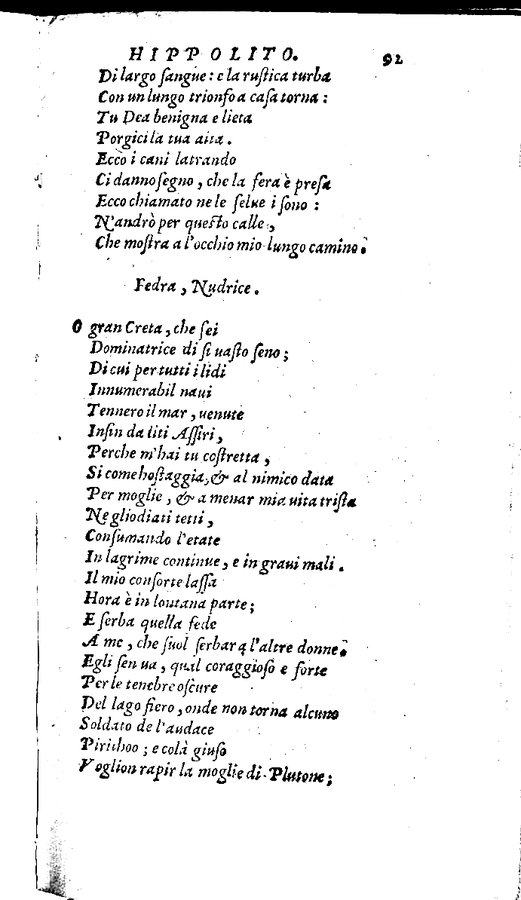 HIPPOLITO. 92
Di largo ſangue: e la ruſtica turba
Con un lungo trionfo a caſa torna:
Tu Dea benigna e lieta
Porgici la tua aita.
Ecco i cani latrando
Ci danno ſegno, che la fera è preſa
Ecco chiamato ne le ſelue i ſono:
N'andrò per queſto calle,
Che moſtra a l'occhio mio lungo camino.
Fedra, Nudrice.
O gran Creta, che ſei
Dominatrice di ſi uaſto ſeno;
Di cui per tutti i lidi
Innumerabil naui
Tennero il mar, uenute
Inſin da liti Aſſiri,
Perche m'hai tu coſtretta,
Si come hoſtaggia, & al nimico data
Per moglie, & a menar mia uita triſta
Ne gliodiati tetti,
Conſumando l'etate
In lagrime continue, e in graui mali.
Il mio conſorte laſſa
Hora è in lontana parte;
E ſerba quella fede
A me, che ſuol ſerbar a l'altre donne.
Egli ſen ua, qual coraggioſo e forte
Per le tenebre oſcure
Del lago fiero, onde non torna alcuno
Soldato de l'audace
Pirithoo; e colà giuſo
Voglion rapir la moglie di Plutone;